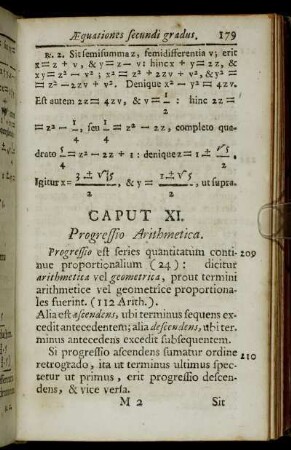 Æquationes secundi gradus. 179
&. 2. Sit semisumma z, semidifferentia v; erit
x = z + v, & y = z − v: hinc x + y = 2z, &
xy = z² − v²; x² = z² + 2zv + v², & y² =
= z² − 2zv + v². Denique x² − y² = 4zv.
Est autem 2z = 4zv, & v = 1/2 : hinc 2z =
= z² − 1/4, seu 1/4 = z² − 2z, completo qua-
drato 5/4 = z² − 2z + 1: denique z = 1 ± √5/2,
Igitur x = 3 ± √5/2, & y = 1 ± √5/2, ut supra.
CAPUT XI.
Progressio Arithmetica.
Progressio est series quantitatum conti- 209
nue proportionalium (24): dicitur
arithmetica vel geometrica, prout termini
arithmetice vel geometrice proportiona-
les fuerint. (112 Arith.).
Alia est ascendens, ubi terminus sequens ex-
cedit antecedentem; alia descendens, ubi ter-
minus antecedens excedit subsequentem.
Si progressio ascendens sumatur ordine 210
retrogrado, ita ut terminus ultimus spec-
tetur ut primus, erit progressio descen-
dens, & vice versa.
M 2 Sit